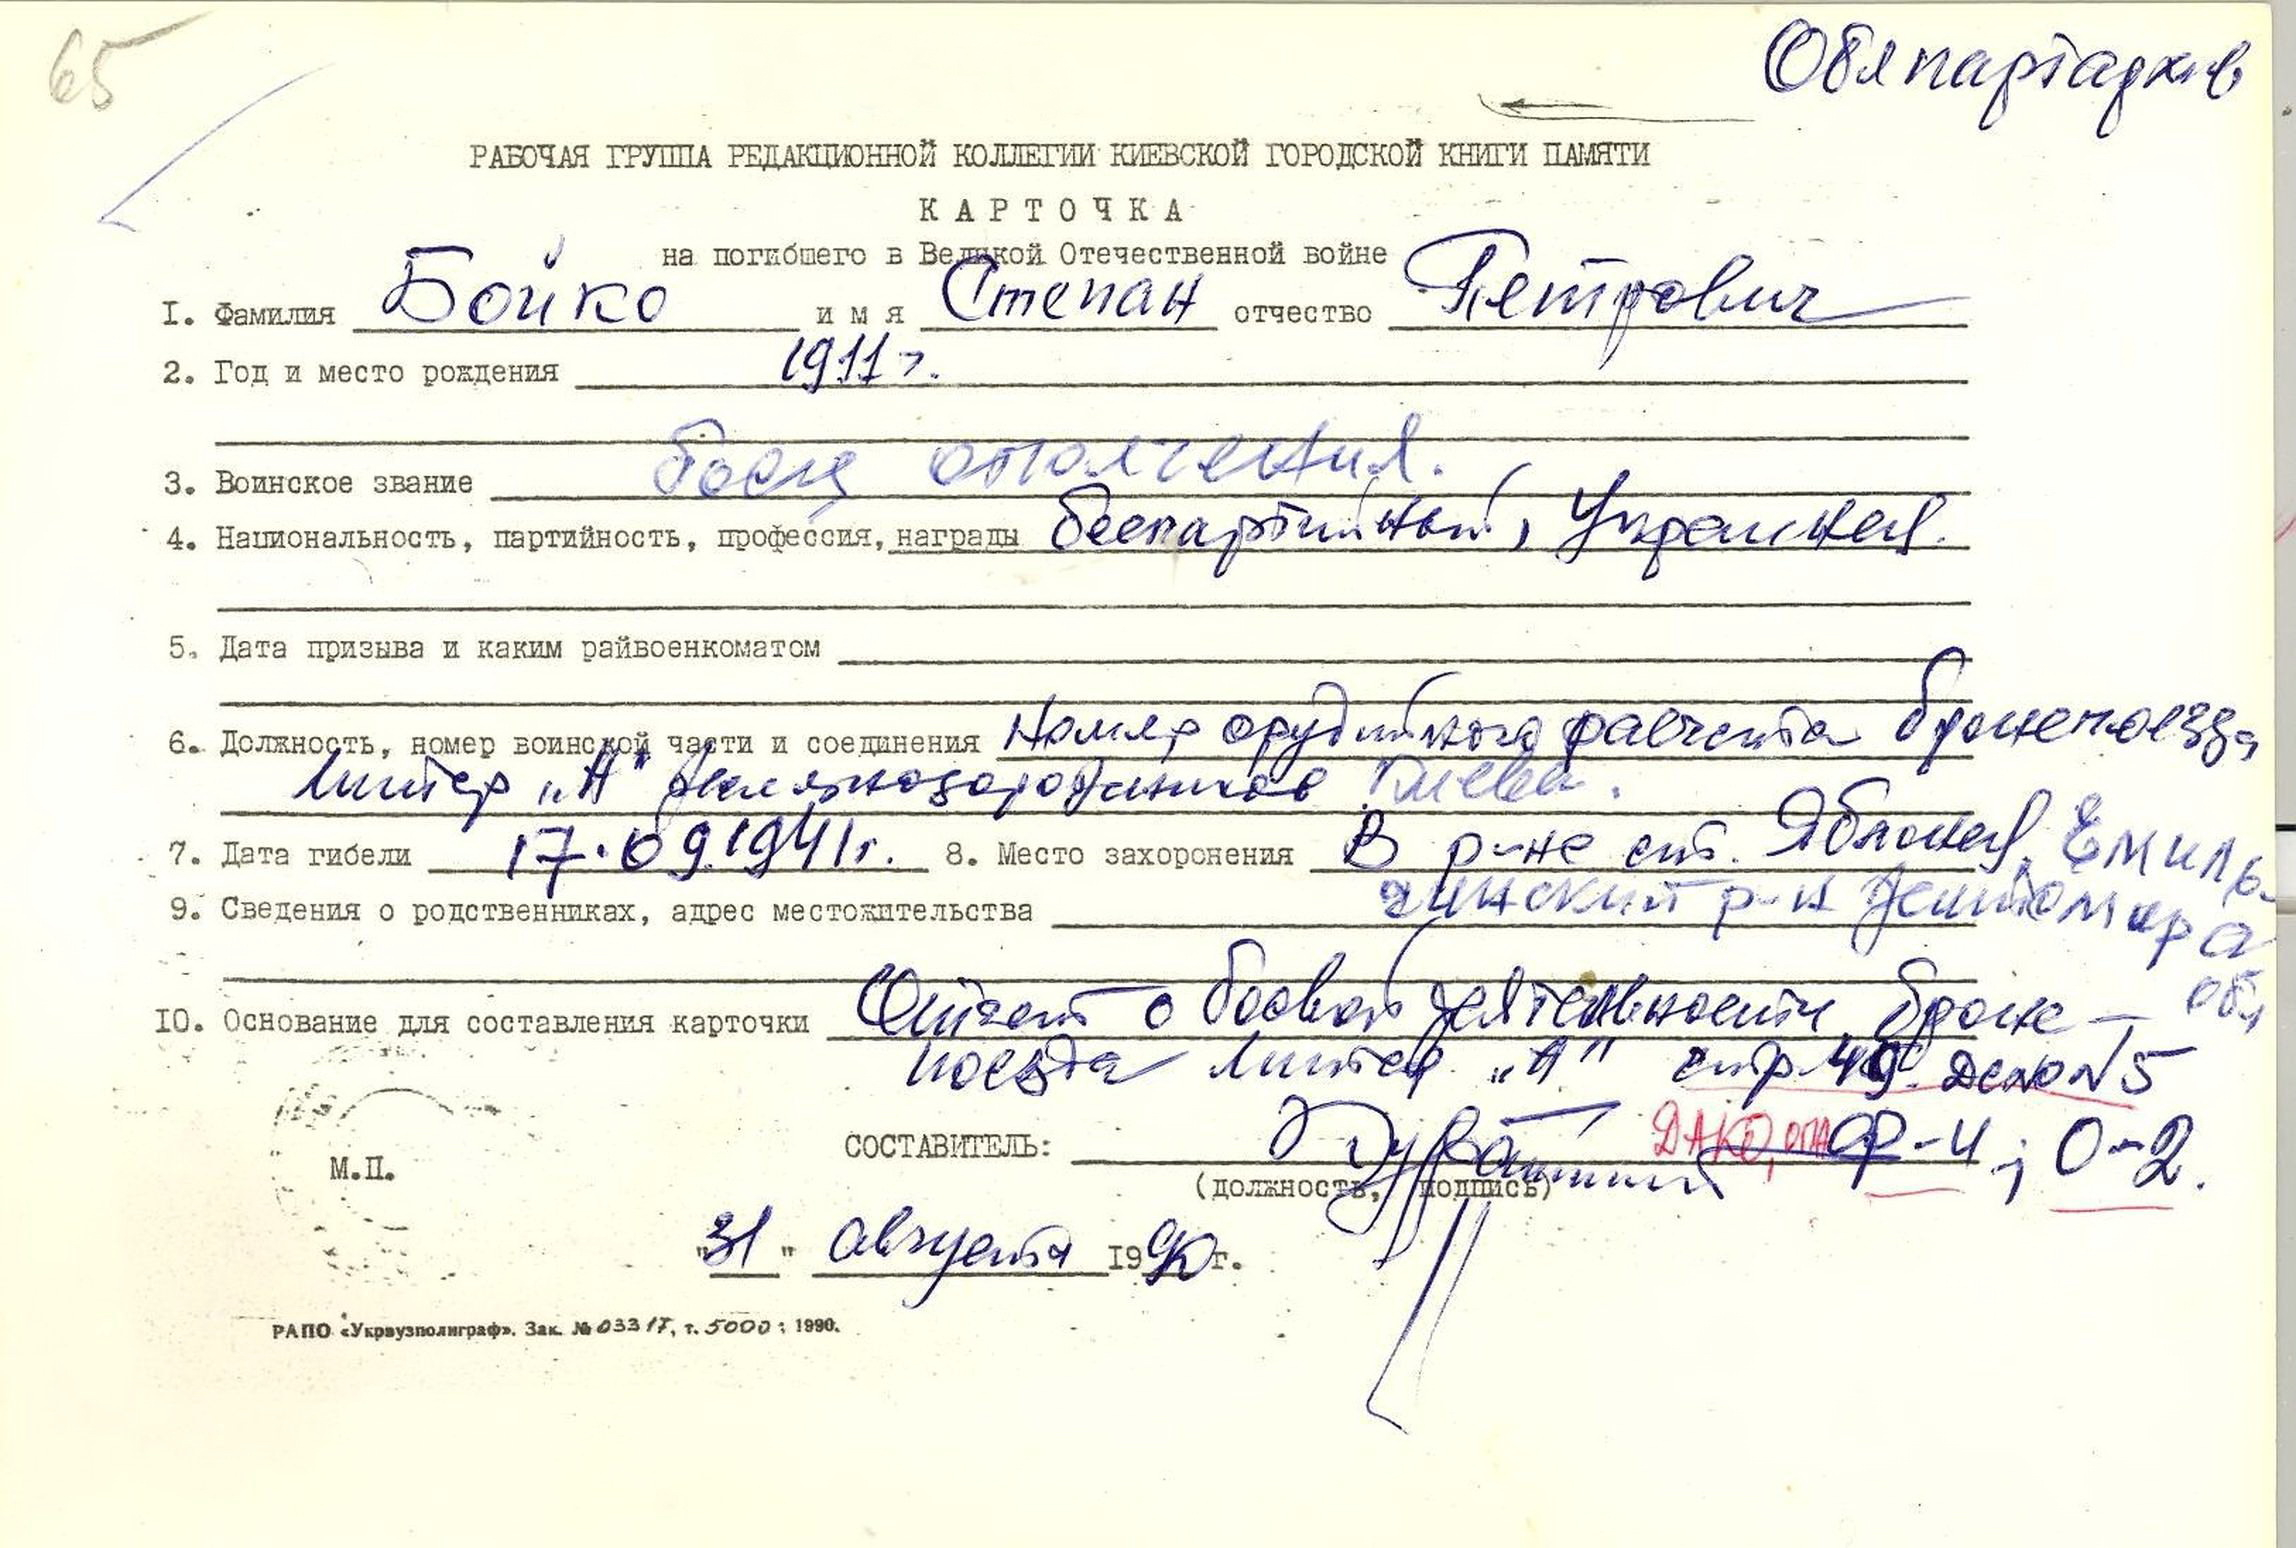 65
Облпартархив
РАБОЧАЯ ГРУППА РЕДАКЦИОННОЙ КОЛЛЕГИИ КИЕВСКОЙ ГОРОДСКОЙ КНИГИ ПАМЯТИ
КАРТОЧКА
на погибшего в Великой Отечественной войне
I. Фамилия Бойко имя Степан отчество Петрович
2. Год и место рождения 1911 г.
3. Воинское звание боец ополчения.
4. Национальность, партийность, профессия, награды беспартийный, Украинец.
5. Дата призыва и каким райвоенкоматом
6. Должность, номер воинской части и соединения номер орудийного расчета бронепоезда
Литер „А" железнодорожников Киева.
7. Дата гибели 17.09.1941г. 8. Место захоронения В р-не ст. Яблонец, Емиль-
чинский р-н Житомир
обл
9. Сведения о родственниках, адрес местожительства
10. Основание для составления карточки Отчет о боевой деятельности броне-
поезда Литер „А" стр. 49. дело N 5
СОСТАВИТЕЛЬ: ДАКО, ОПА Ф-4; О-2.
(должность, подпись)
М.П.
"31" августа 1990г.
РАПО «Укрвузполиграф». Зак. № 03317, т. 5000; 1990.